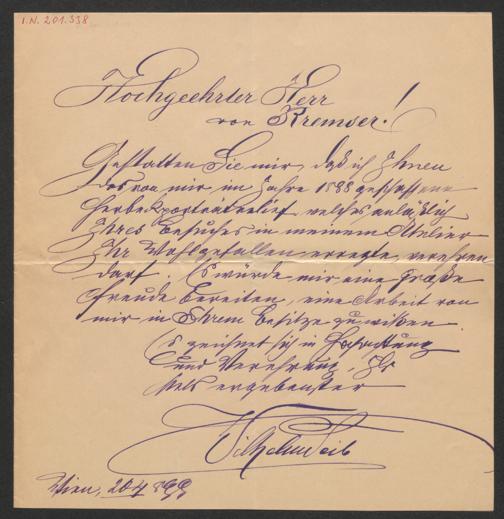 I.N. 201.338
Hochgeehrter Herr
von Kremser!
Gestatten Sie mir, daß ich Ihnen
das von mir im Jahre 1888 geschaffene
Herbeckporträtrelief, welches anläßlich
Ihres Besuches in meinem Atelier
Ihr Wohlgefallen erregte, verehren
darf. Es würde mir eine große
Freude bereiten, eine Arbeit von
mir in Ihrem Besitze zu wissen.
Es zeichnet sich in Hochachtung
und Verehrung, Ihr
stets ergebenster
Wilhelm Seib
Wien, 20/4 899